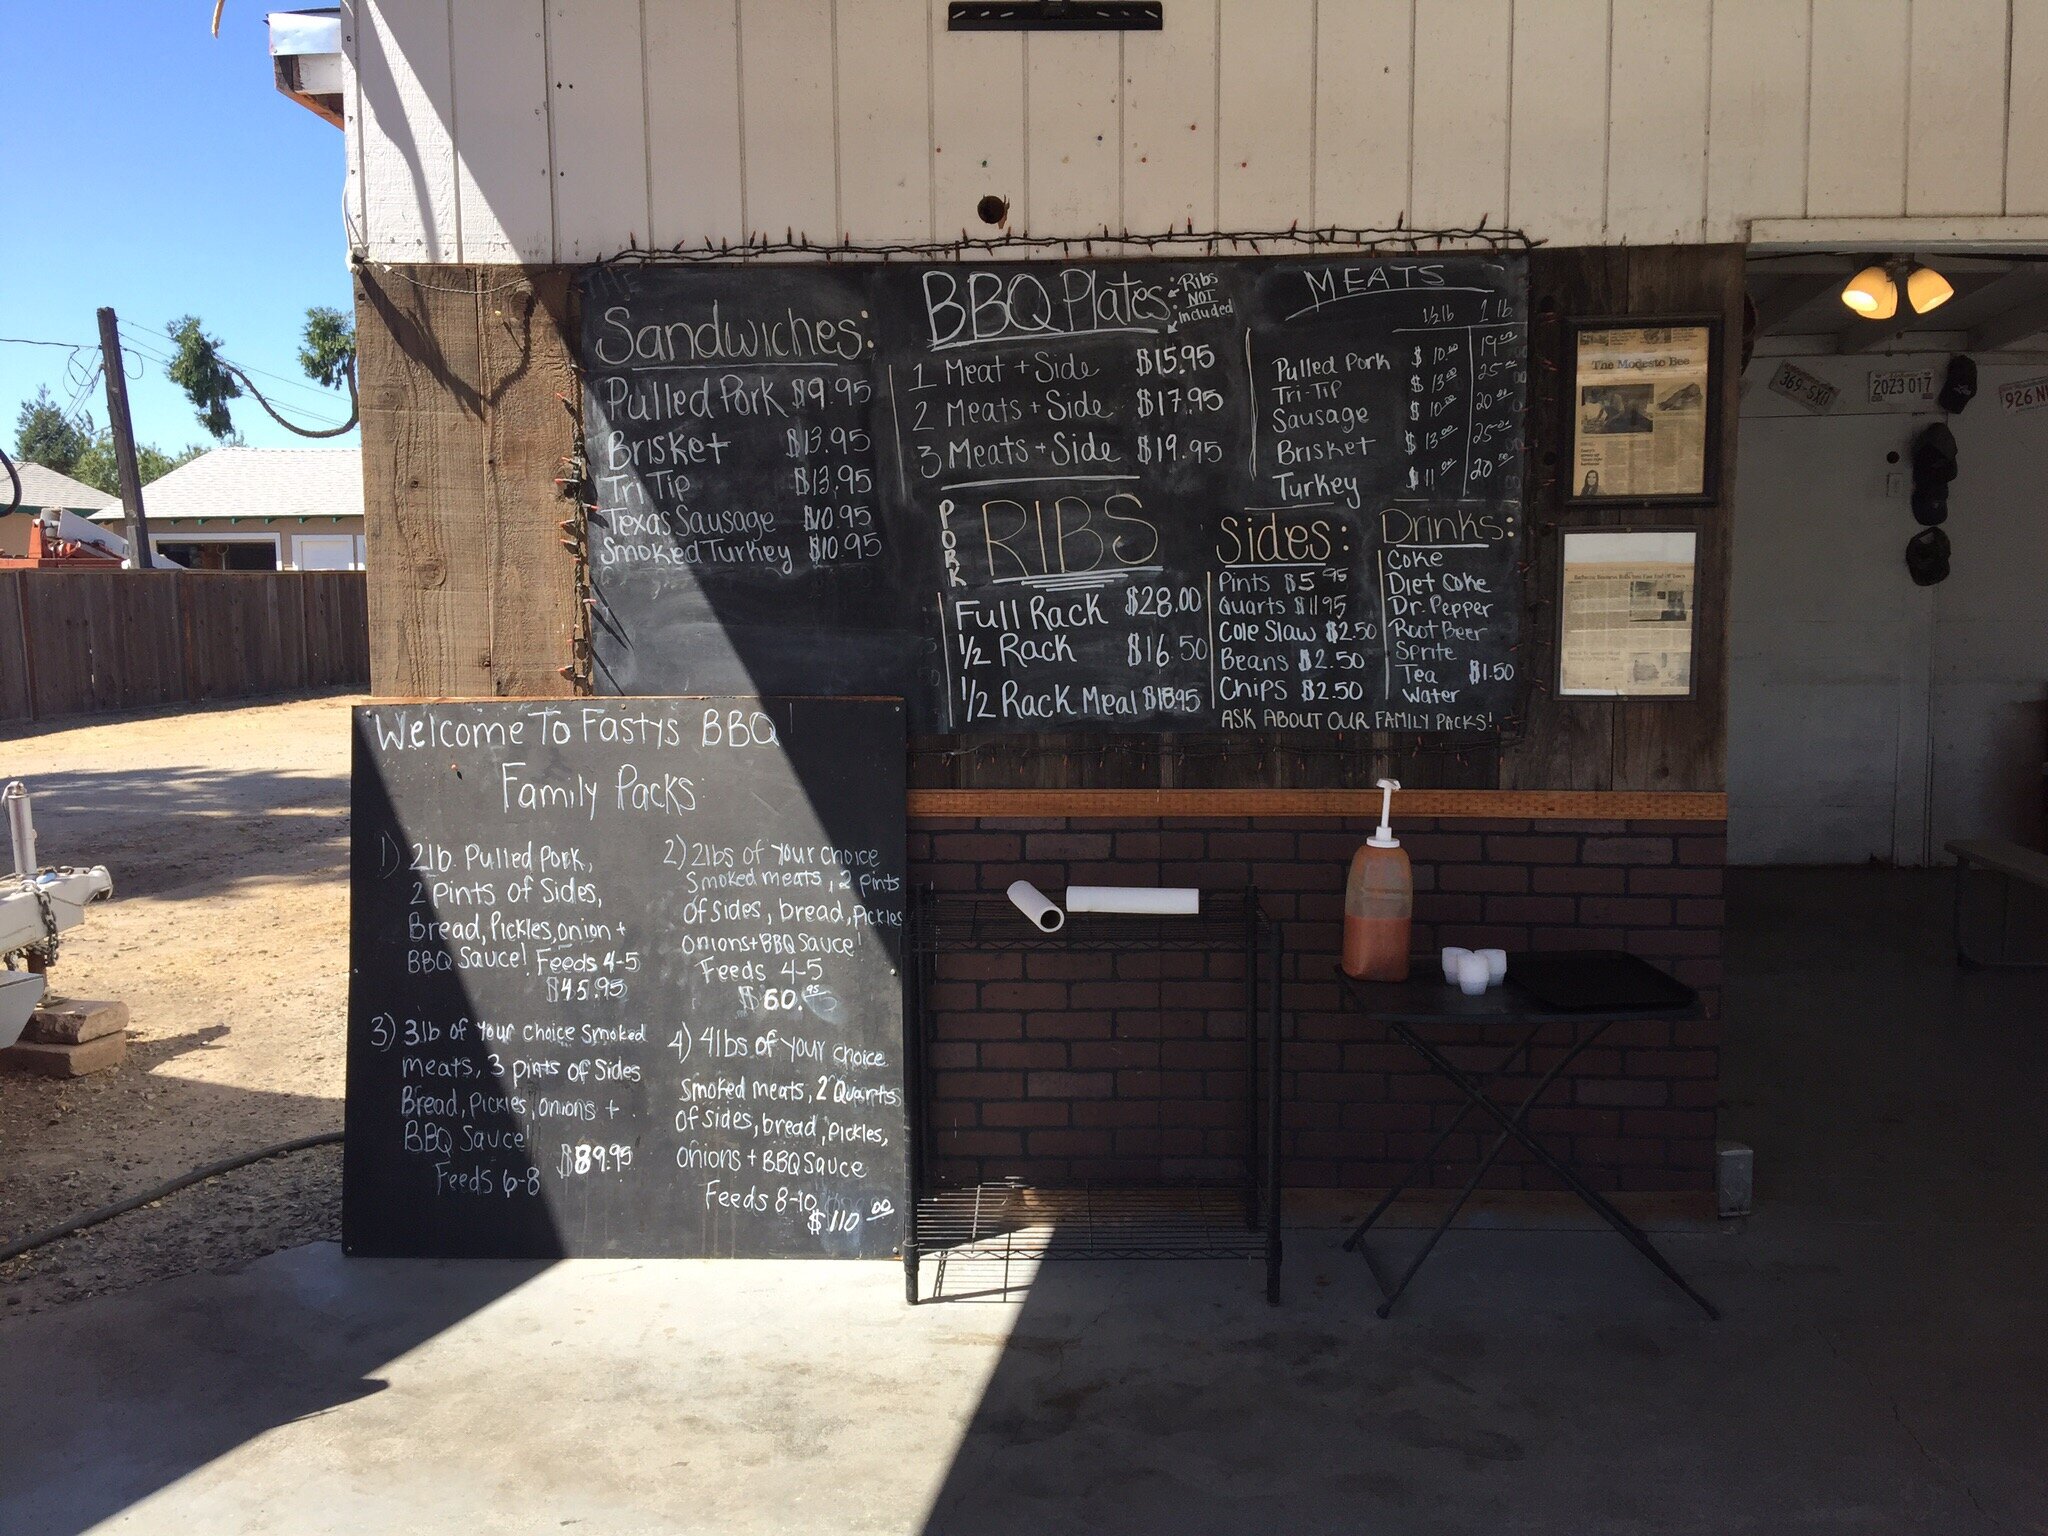 Sandwiches:
Pulled Pork $9.95
Brisket $13.95
Tri Tip $13.95
Texas Sausage $10.95
Smoked Turkey $10.95
BBQ Plates:
Ribs
NOT
included
1 Meat + Side $15.95
2 Meats + Side $17.95
3 Meats + Side $19.95
PORK
RIBS
Full Rack $28.00
1/2 Rack $16.50
1/2 Rack Meal $18.95
MEATS
1/2 lb 1 lb
Pulled Pork $10.00 19.00
Tri-Tip $13.00 25.00
Sausage $10.00 20.00
Brisket $13.00 25.00
Turkey $11.00 20.00
Sides:
Pints $5.95
Quarts $11.95
Cole Slaw $2.50
Beans $2.50
Chips $2.50
Drinks:
Coke
Diet Coke
Dr. Pepper
Root Beer
Sprite
Tea $1.50
Water
ASK ABOUT OUR FAMILY PACKS!
Welcome To Fastys BBQ!
Family Packs:
1) 2lb. Pulled Pork,
2 Pints of Sides,
Bread, Pickles, onion +
BBQ Sauce! Feeds 4-5
$45.95
2) 2lbs of Your Choice
Smoked meats, 2 pints
of sides, bread, pickles
onions + BBQ Sauce!
Feeds 4-5
$60.95
3) 3lb of Your Choice Smoked
meats, 3 pints of Sides
Bread, Pickles, onions +
BBQ Sauce!
$89.95
Feeds 6-8
4) 4lbs of Your Choice
Smoked meats, 2 Quarts
of sides, bread, pickles,
onions + BBQ Sauce
Feeds 8-10
$110.00
The Modesto Bee
Barbecue Business Rolls Into East End Of Town
369-SXO
20Z3 017
926